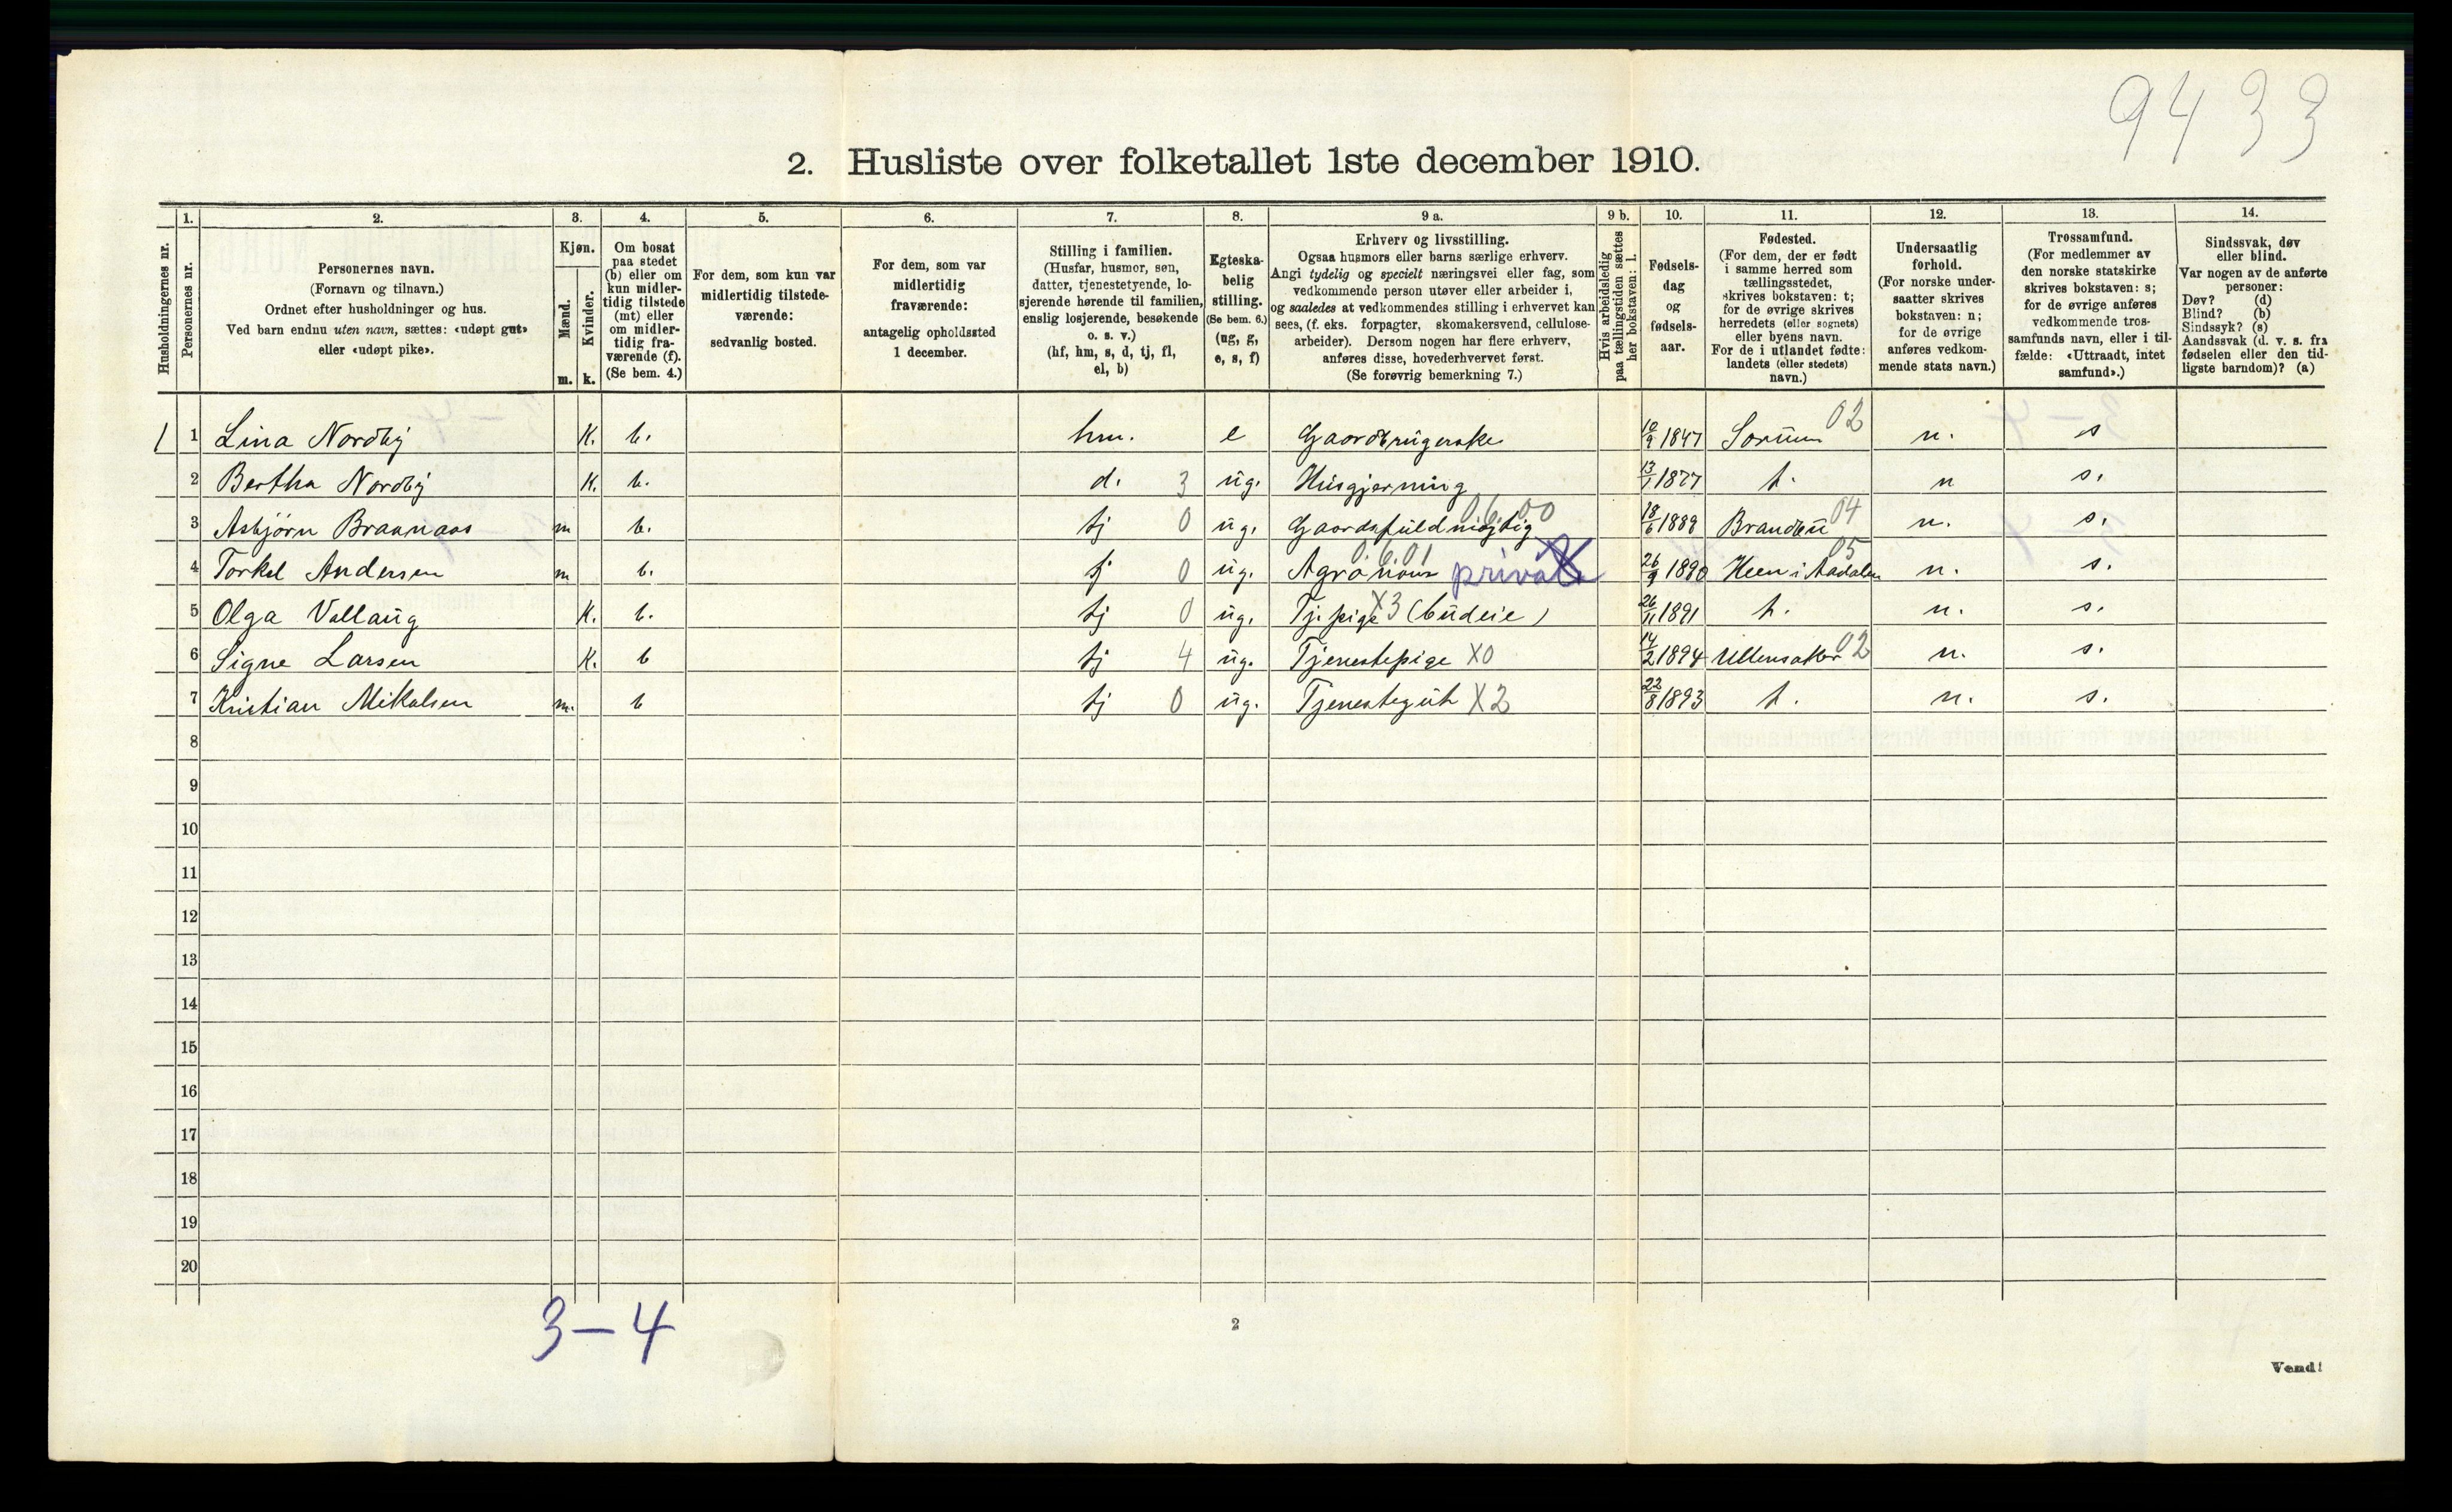 9433
2. Husliste over folketallet 1ste december 1910.
Husholdningernes nr.
1. Personernes nr.
2. Personernes navn.
(Fornavn og tilnavn.)
Ordnet efter husholdninger og hus.
Ved barn endnu uten navn, sættes: «udøpt gut»
eller «udøpt pike».
3. Kjøn.
Mænd. m.
Kvinder. k.
4. Om bosat
paa stedet
(b) eller om
kun midler-
tidig tilstede
(mt) eller
om midler-
tidig fra-
værende (f).
(Se bem. 4.)
5. For dem, som kun var
midlertidig tilstede-
værende:
sedvanlig bosted.
6. For dem, som var
midlertidig
fraværende:
antagelig opholdssted
1 december.
7. Stilling i familien.
(Husfar, husmor, søn,
datter, tjenestetyende, lo-
sjerende hørende til familien,
enslig losjerende, besøkende
o. s. v.)
(hf, hm, s, d, tj, fl,
el, b)
8. Egteska-
belig
stilling.
(Se bem. 6.)
(ug, g,
e, s, f)
9 a. Erhverv og livsstilling.
Ogsaa husmors eller barns særlige erhverv.
Angi tydelig og specielt næringsvei eller fag, som
vedkommende person utøver eller arbeider i,
og saaledes at vedkommendes stilling i erhvervet kan
sees, (f. eks. forpagter, skomakersvend, cellulose-
arbeider). Dersom nogen har flere erhverv,
anføres disse, hovederhvervet først.
(Se forøvrig bemerkning 7.)
9 b. Hvis arbeidsledig
paa tællingstiden sættes
her bokstaven: l.
10. Fødsels-
dag
og
fødsels-
aar.
11. Fødested.
(For dem, der er født
i samme herred som
tællingsstedet,
skrives bokstaven: t;
for de øvrige skrives
herredets (eller sognets)
eller byens navn.
For de i utlandet fødte:
landets (eller stedets)
navn.)
12. Undersaatlig
forhold.
(For norske under-
saatter skrives
bokstaven: n;
for de øvrige
anføres vedkom-
mende stats navn.)
13. Trossamfund.
(For medlemmer av
den norske statskirke
skrives bokstaven: s;
for de øvrige anføres
vedkommende tros-
samfunds navn, eller i til-
fælde: «Uttraadt, intet
samfund».)
14. Sindssvak, døv
eller blind.
Var nogen av de anførte
personer:
Døv? (d)
Blind? (b)
Sindssyk? (s)
Aandssvak (d. v. s. fra
fødselen eller den tid-
ligste barndom)? (a)
1 1 Lina Nordby K. b. hm. e Gaardbrugerske 10/9 1847 Sorum 02 n. s
2 Bertha Nordby K. b. d. 3 ug. Husgjerning 13/1 1877 t. n s.
3 Asbjörn Braanaas m b. tj 0 ug. Gaardsfuldmægtig 0600 18/6 1889 Brandbu 04 n. s.
4 Torkel Andersen m b. tj 0 ug. Agronom 0601 privat 26/9 1890 Heen i Aadalen 05 n. s.
5 Olga Vallaug K. b. tj 0 ug. Tj. pige X3 (budeie) 26/11 1891 t. n. s.
6 Signe Larsen K. b tj 4 ug. Tjenestepige X0 14/2 1894 Ullensaker 02 n. s.
7 Kristian Mikalsen m. b tj 0 ug. Tjenestegut X2 22/8 1893 t. n. s.
8
9
10
11
12
13
14
15
16
17
18
19
20
3-4
2
Vend!